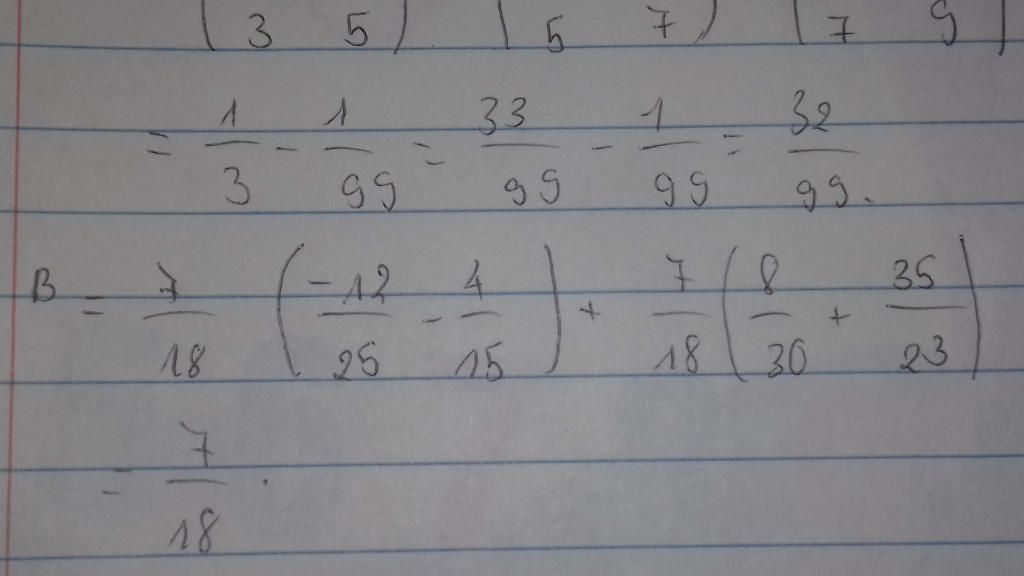 ( 3 5 ) ( 5 7 ) ( 7 9 )
= 1/3 - 1/99 = 33/99 - 1/99 = 32/99.
B = 7/18 (-12/25 - 4/15) + 7/18 (8/30 + 35/23)
= 7/18 .